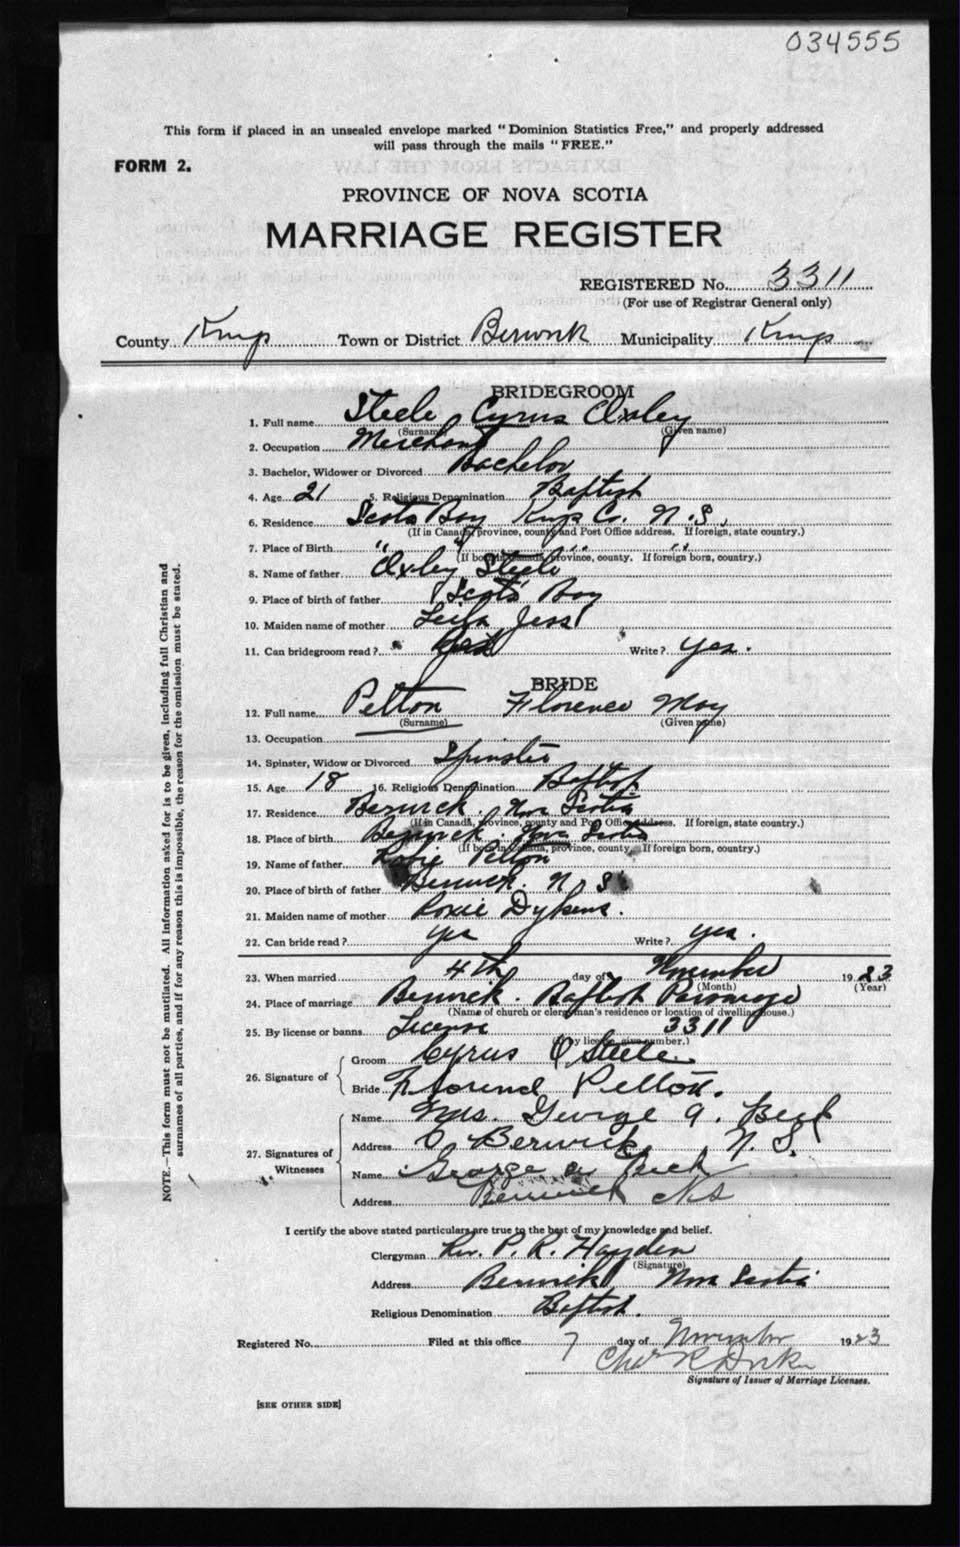 034555
This form if placed in an unsealed envelope marked "Dominion Statistics Free," and properly addressed
will pass through the mails "FREE."
FORM 2.
PROVINCE OF NOVA SCOTIA
MARRIAGE REGISTER
REGISTERED No. 3311
(For use of Registrar General only)
County Kings Town or District Berwick Municipality Kings
BRIDEGROOM
1. Full name Steele Cyrus Oxley
(Surname) (Given name)
2. Occupation Merchant
3. Bachelor, Widower or Divorced Bachelor
4. Age 21 5. Religious Denomination Baptist
6. Residence Scots Bay Kings C. N.S.
(If in Canada, province, county and Post Office address. If foreign, state country.)
7. Place of Birth " " " "
(If born in Canada, province, county. If foreign born, country.)
8. Name of father Oxley Steele
9. Place of birth of father Scots Bay
10. Maiden name of mother Leila Jess
11. Can bridegroom read? Write? yes.
BRIDE
12. Full name Pelton Florence May
(Surname) (Given name)
13. Occupation
14. Spinster, Widow or Divorced Spinster
15. Age 18 16. Religious Denomination Baptist
17. Residence Berwick. Nova Scotia
(If in Canada, province, county and Post Office address. If foreign, state country.)
18. Place of birth Berwick. Nova Scotia
(If born in Canada, province, county. If foreign born, country.)
19. Name of father Pelton
20. Place of birth of father Berwick. N.S.
21. Maiden name of mother Roxie Dykens.
22. Can bride read? yes Write? yes.
23. When married 4th day of November 1923
(Month) (Year)
24. Place of marriage Berwick. Baptist Parsonage
(Name of church or clergyman's residence or location of dwelling house.)
25. By license or banns License 3311
(If by license, give number.)
26. Signature of Groom Cyrus O Steele
Bride Florence Pelton.
27. Signatures of Witnesses Name Mrs. George A. Beck
Address Berwick N.S.
Name George A Beck
Address Berwick NS
I certify the above stated particulars are true to the best of my knowledge and belief.
Clergyman Rev. P. R. Hayden
(Signature)
Address Berwick Nova Scotia
Religious Denomination Baptist.
Registered No. Filed at this office 7 day of November 1923
Chas R
Signature of Issuer of Marriage Licenses.
[SEE OTHER SIDE]
NOTE.—This form must not be mutilated. All information asked for is to be given, including full Christian and
surnames of all parties, and if for any reason this is impossible, the reason for the omission must be stated.